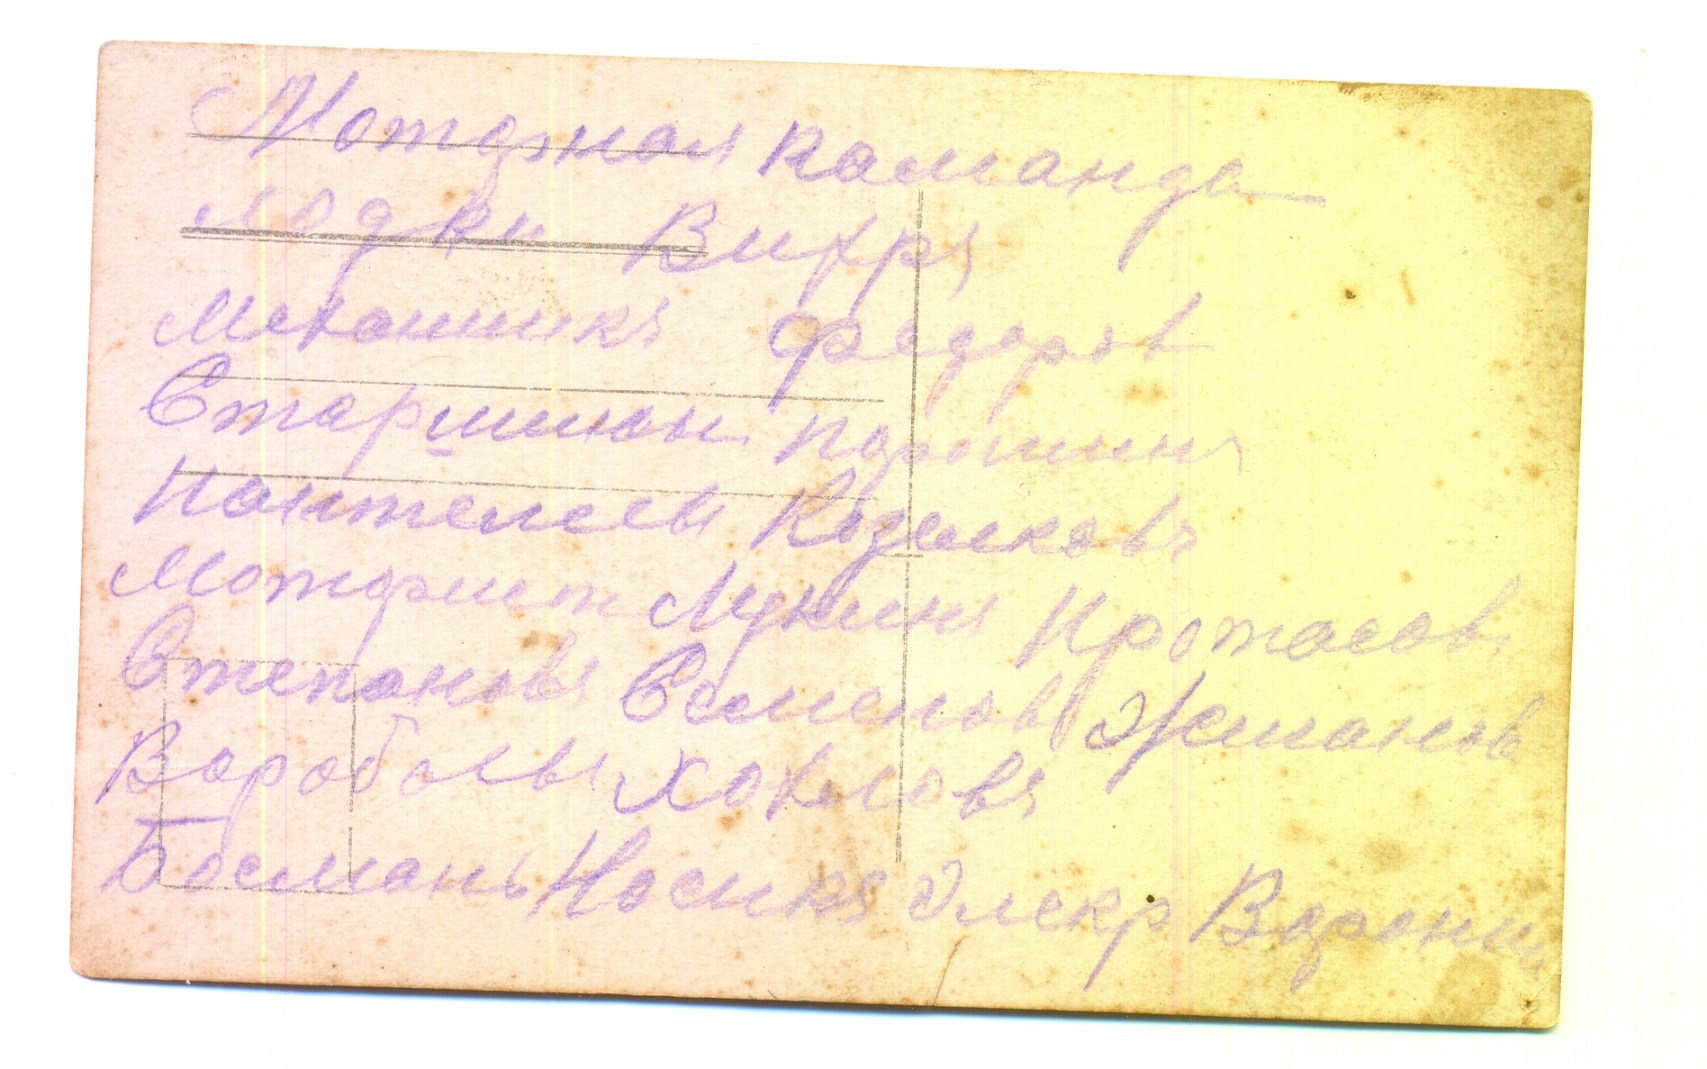 Моторная каманда
лодки Вихрь
Механикъ Федоров
Старшины Порошинъ
Пантелеевъ Козелковъ
Моторист Лунинъ Протасовъ
Степановъ Семеновъ
Воробьевъ Хохловъ
Босмань Носикъ Элекр